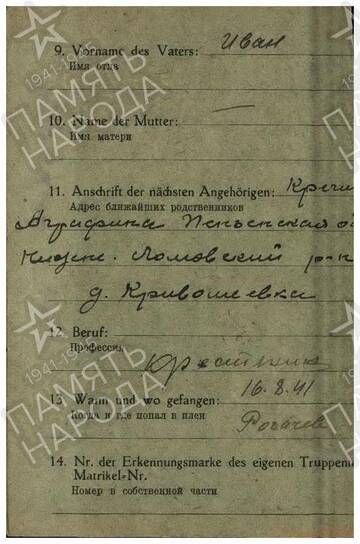 9. Vorname des Vaters: Иван
Имя отца
10. Name der Mutter: —
Имя матери
11. Anschrift der nächsten Angehörigen:
Адрес ближайших родственников
Пензенская о
Нижне-Ломовский р-н
д. Кривошеевка
12. Beruf:
Профессия
16.8.41
13. Wann und wo gefangen:
Когда и где попал в плен
Рогачев
14. Nr. der Erkennungsmarke des eigenen Truppen
Matrikel-Nr.
Номер в собственной части
1941-19
ПАМЯТЬ
НАРОДА